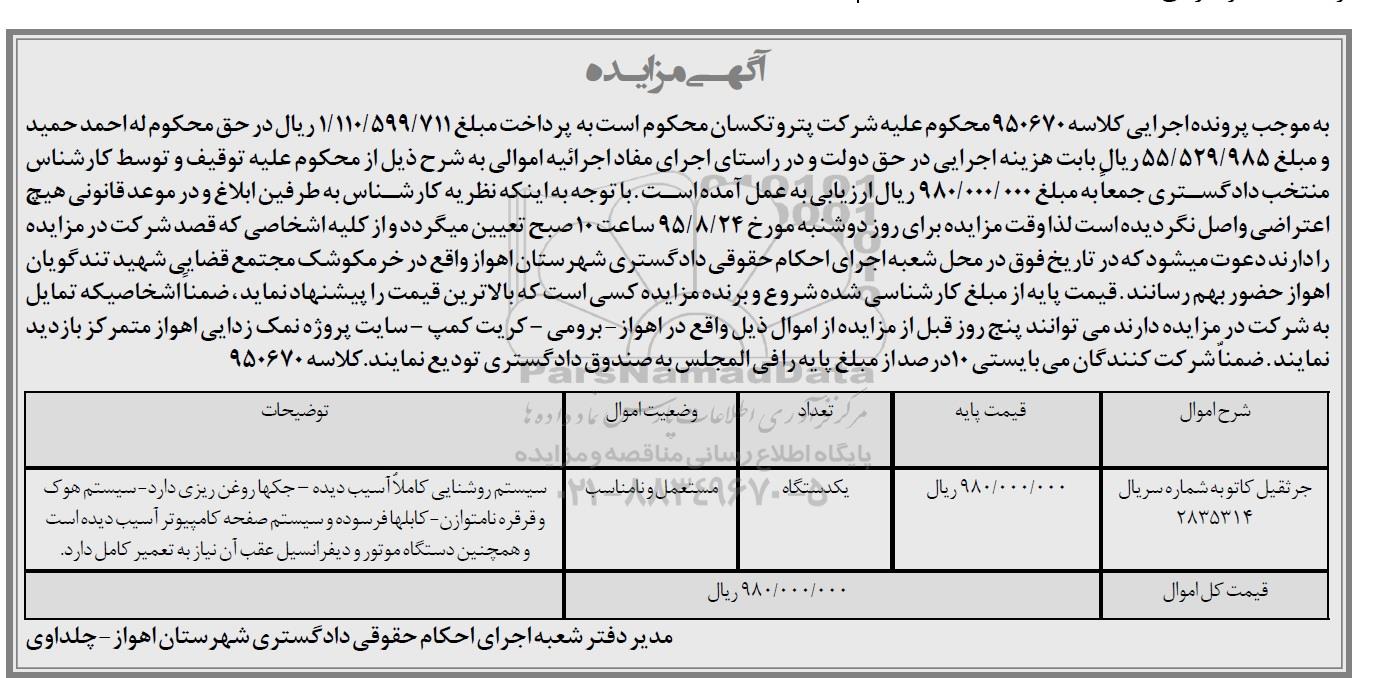 آگهی مزایده
به موجب پرونده اجرایی کلاسه ۹۵۰۶۷۰ محکوم علیه شرکت پتروتکسان محکوم است به پرداخت مبلغ ۱/۱۱۰/۵۹۹/۷۱۱ ریال در حق محکوم له احمد حمید
و مبلغ ۵۵/۵۲۹/۹۸۵ ریال بابت هزینه اجرایی در حق دولت و در راستای اجرای مفاد اجرائیه اموالی به شرح ذیل از محکوم علیه توقیف و توسط کارشناس
منتخب دادگستری جمعاً به مبلغ ۹۸۰/۰۰۰/۰۰۰ ریال ارزیابی به عمل آمده است. با توجه به اینکه نظریه کارشناس به طرفین ابلاغ و در موعد قانونی هیچ
اعتراضی واصل نگردیده است لذا وقت مزایده برای روز دوشنبه مورخ ۹۵/۸/۲۴ ساعت ۱۰ صبح تعیین میگردد و از کلیه اشخاصی که قصد شرکت در مزایده
را دارند دعوت میشود که در تاریخ فوق در محل شعبه اجرای احکام حقوقی دادگستری شهرستان اهواز واقع در خرمکوشک مجتمع قضایی شهید تندگویان
اهواز حضور بهم رسانند. قیمت پایه از مبلغ کارشناسی شده شروع و برنده مزایده کسی است که بالاترین قیمت را پیشنهاد نماید، ضمناً اشخاصیکه تمایل
به شرکت در مزایده دارند می توانند پنج روز قبل از مزایده از اموال ذیل واقع در اهواز - برومی - کریت کمپ - سایت پروژه نمک زدایی اهواز متمرکز بازدید
نمایند. ضمناً شرکت کنندگان می بایستی ۱۰درصد از مبلغ پایه را فی المجلس به صندوق دادگستری تودیع نمایند.کلاسه ۹۵۰۶۷۰
ParsNamadData
شرح اموال قیمت پایه تعداد وضعیت اموال توضیحات
پایگاه اطلاع رسانی مناقصه و مزایده
جرثقیل کاتو به شماره سریال ۹۸۰/۰۰۰/۰۰۰ ریال یکدستگاه مستعمل و نامناسب سیستم روشنایی کاملاً آسیب دیده - جکها روغن ریزی دارد- سیستم هوک
۰۲۱-۸۸۳۴۹۶۷۰-۵
۲۸۳۵۳۱۴ و قرقره نامتوازن- کابلها فرسوده و سیستم صفحه کامپیوتر آسیب دیده است
و همچنین دستگاه موتور و دیفرانسیل عقب آن نیاز به تعمیر کامل دارد.
قیمت کل اموال ۹۸۰/۰۰۰/۰۰۰ ریال
مدیر دفتر شعبه اجرای احکام حقوقی دادگستری شهرستان اهواز - چلداوی